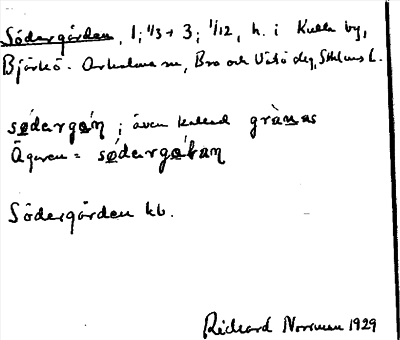 Södergården, 1; 1/3 + 3; 1/12, h. i Kulla by,
Björkö-Arholma sn, Bro och Vätö skg, Sthlms l.
sødergǻn; även kallad grànas
Ägaren = sødergǻban
Södergården kb.
Richard Norrman 1929